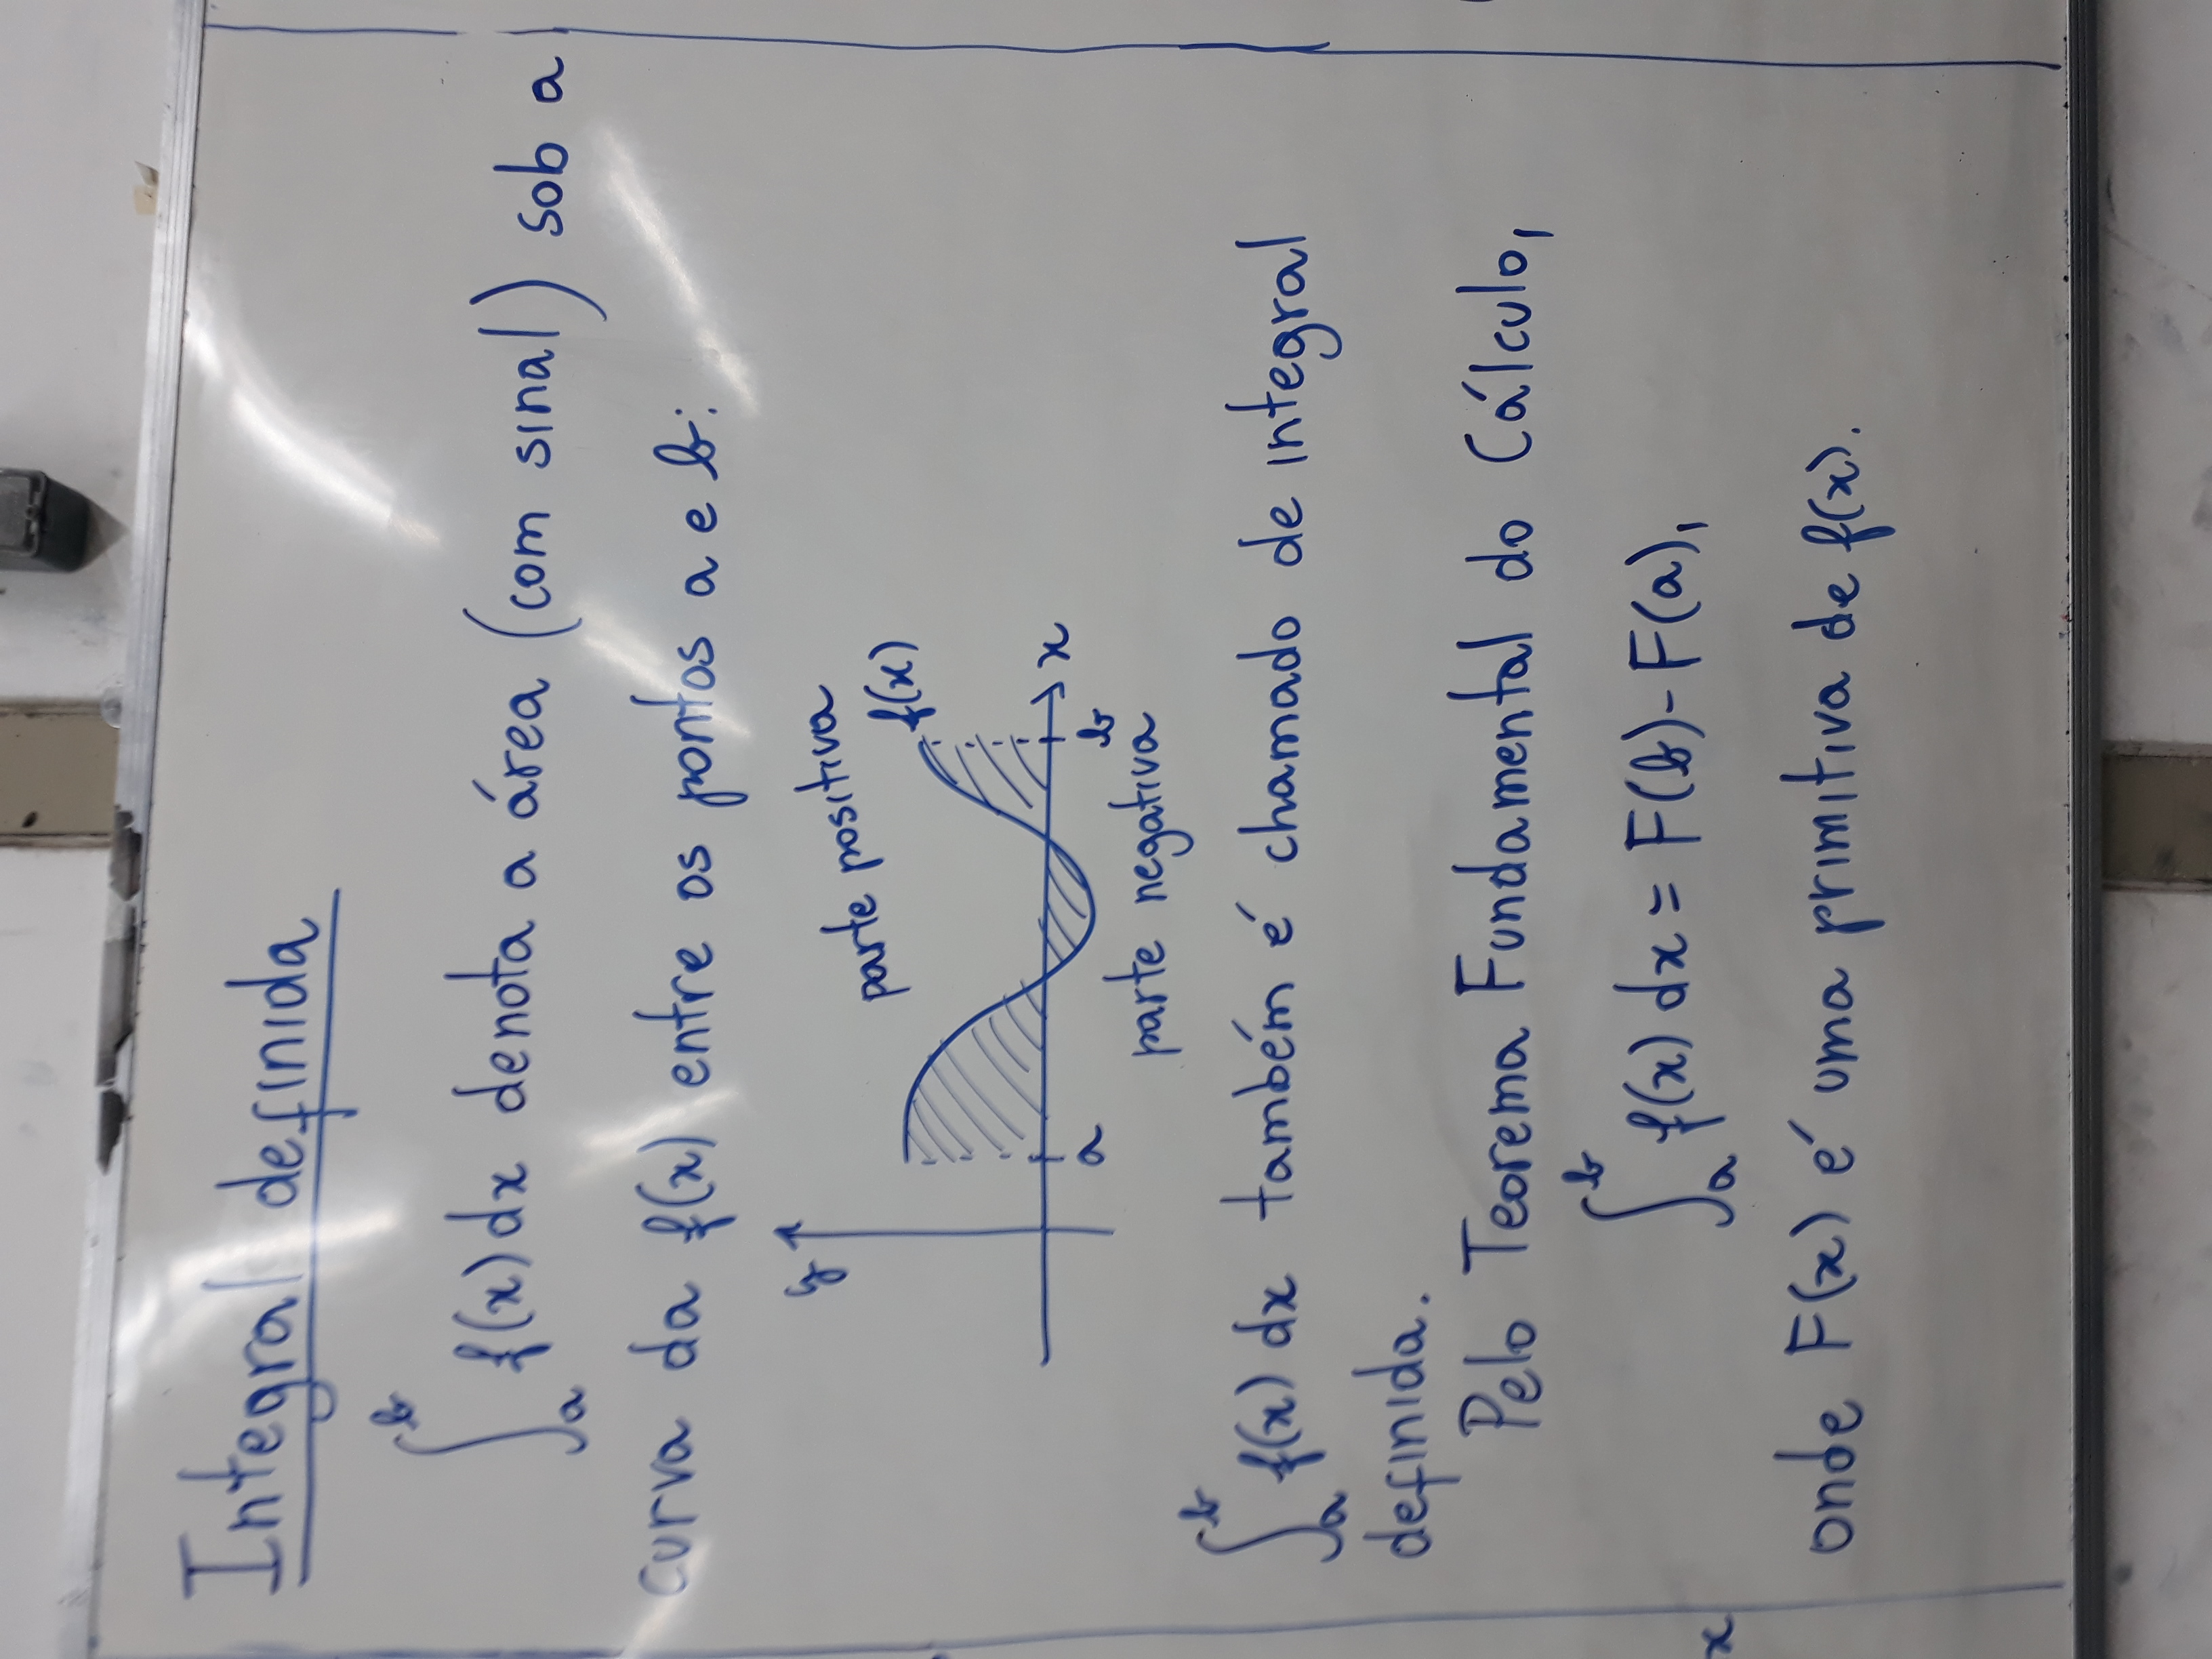 Integral definida
∫_a^b f(x) dx denota a área (com sinal) sob a
curva da f(x) entre os pontos a e b:
y
parte positiva
f(x)
x
a
b
parte negativa
∫_a^b f(x) dx também é chamado de integral
definida.
Pelo Teorema Fundamental do Cálculo,
∫_a^b f(x) dx = F(b) - F(a),
x
onde F(x) é uma primitiva de f(x).